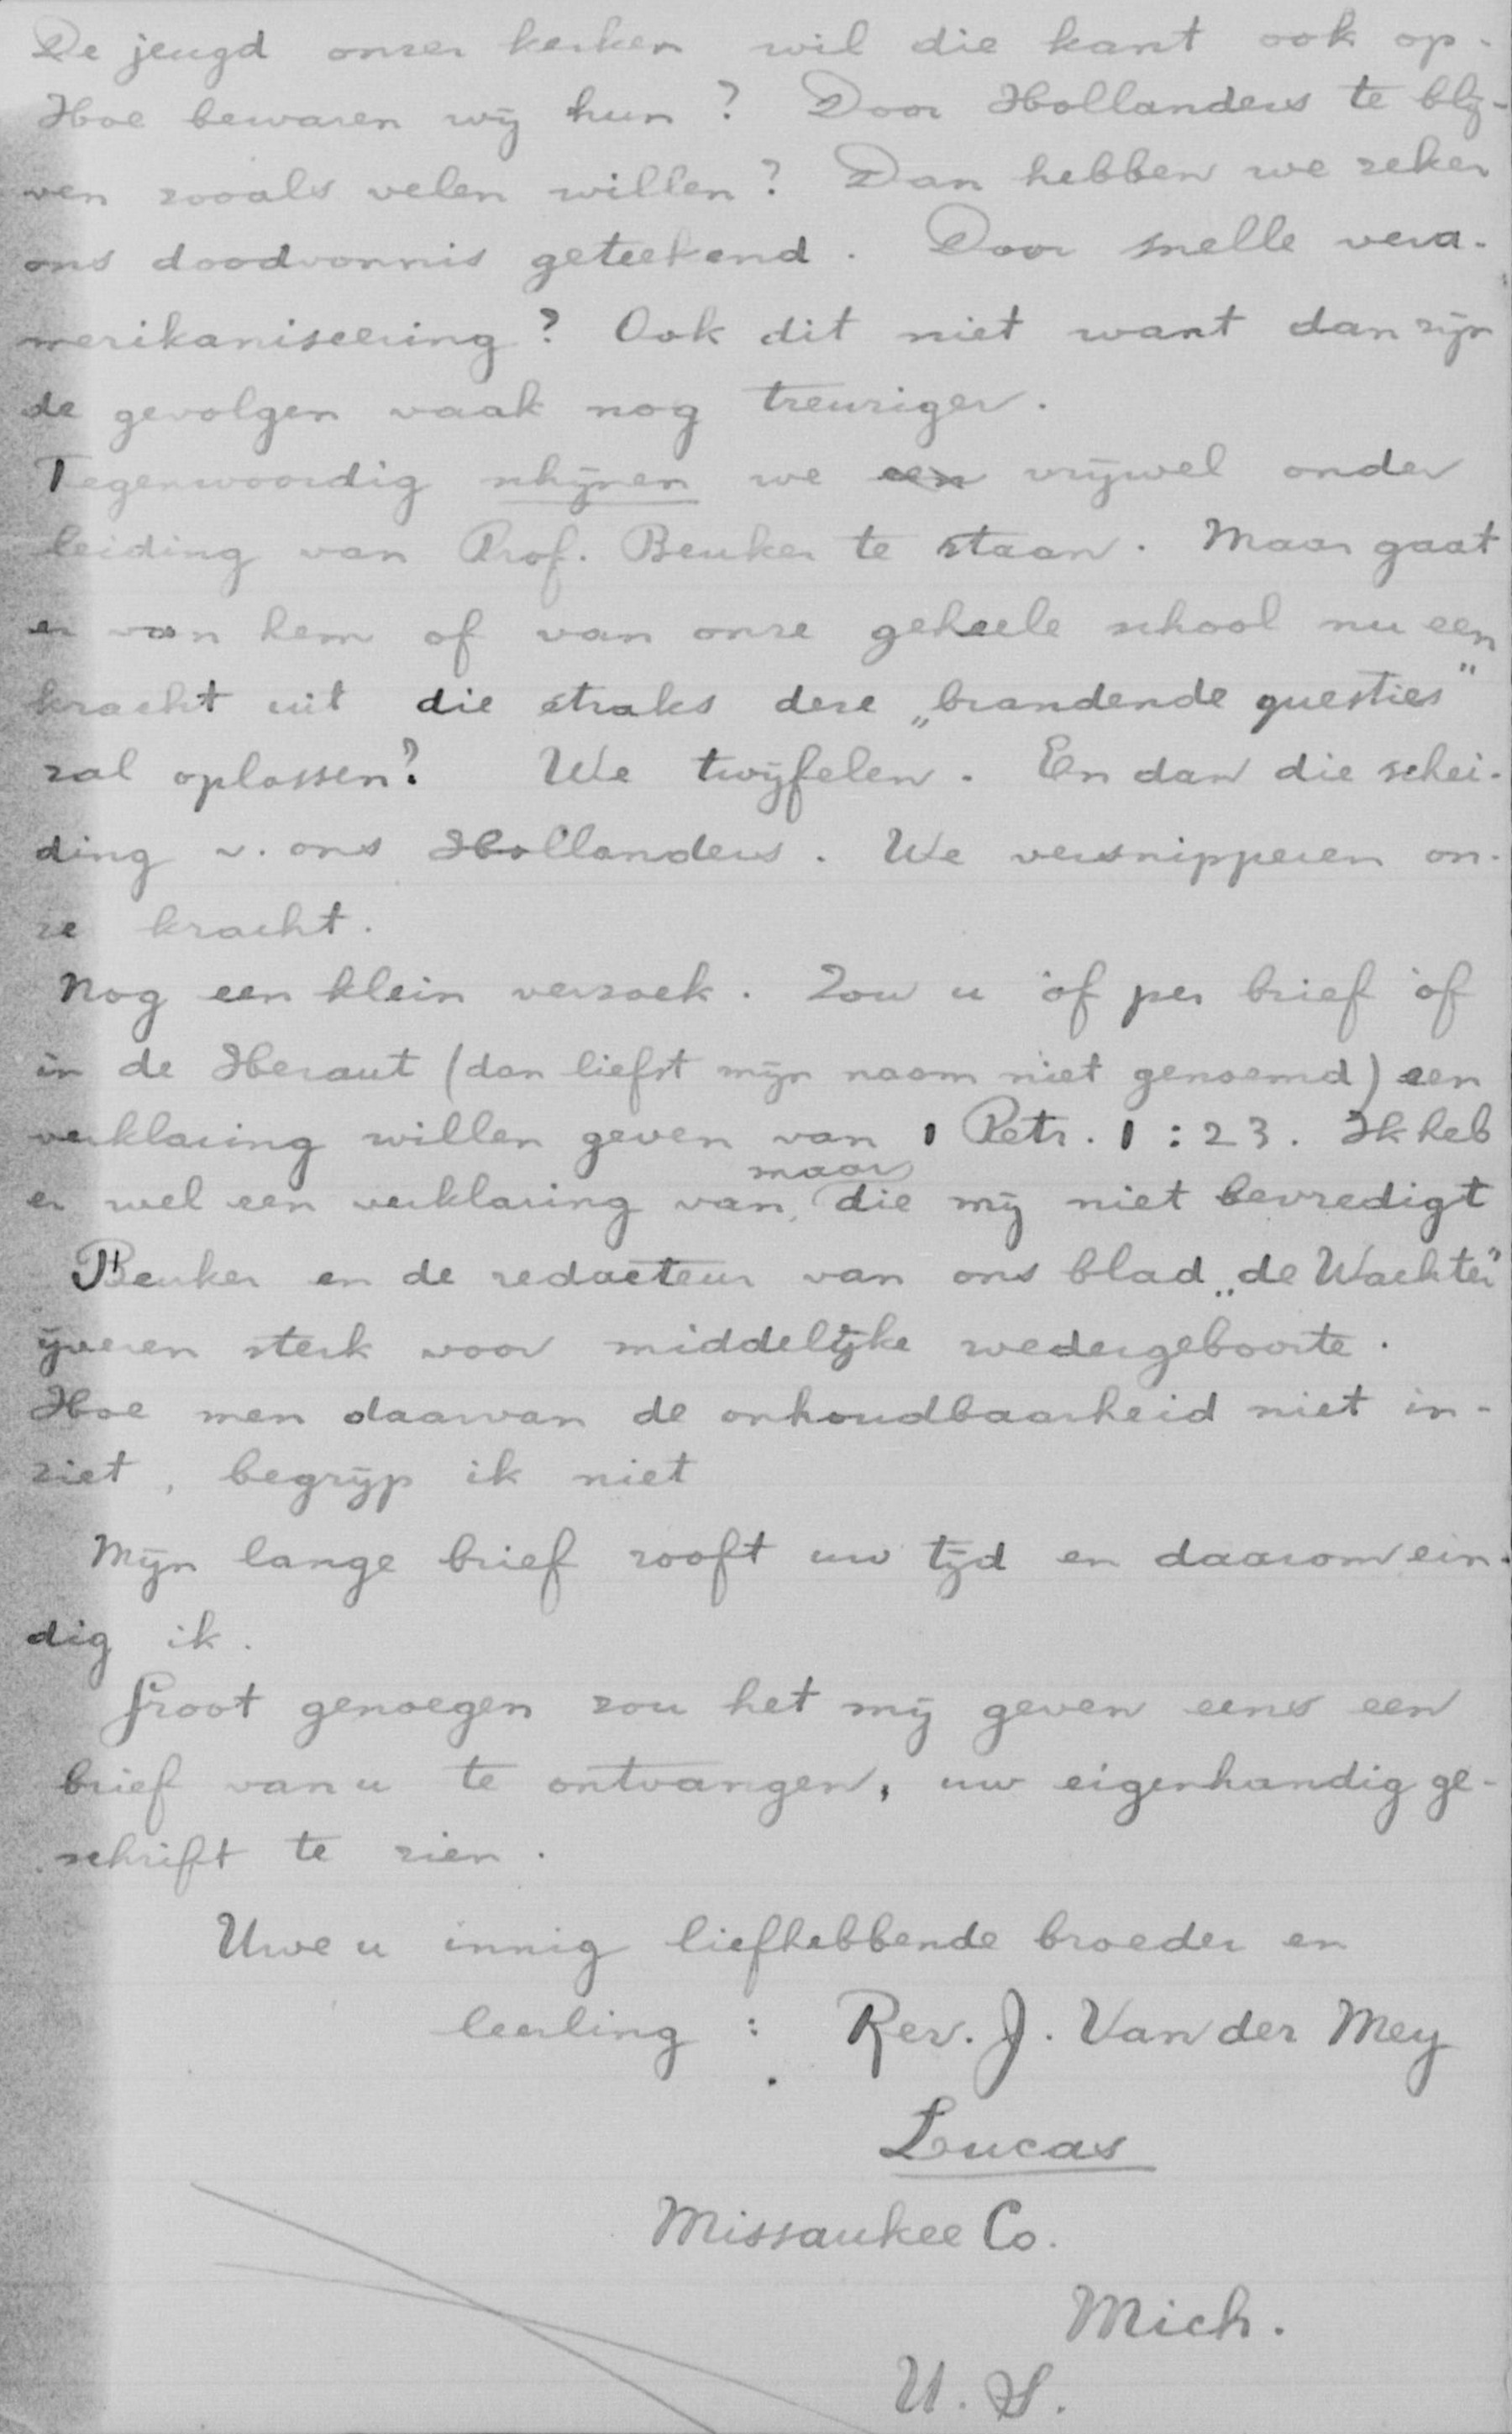 De jeugd onzer kerken wil die kant ook op.
Hoe bewaren wij hun? Door Hollanders te blij-
ven zooals velen willen? Dan hebben we zeker
ons doodvonnis geteekend. Door snelle vera-
merikaniseering? Ook dit niet want dan zijn
de gevolgen vaak nog treuriger.
Tegenwoordig schijnen we een vrijwel onder
leiding van Prof. Beuker te staan. Maar gaat
er van hem of van onze geheele school nu een
kracht uit die straks deze „brandende questies"
zal oplossen? We twijfelen. En dan die schei-
ding v. ons Hollanders. We versnipperen on-
ze kracht.
Nog een klein verzoek. Zou u òf per brief òf
in de Heraut (dan liefst mijn naam niet genoemd) een
verklaring willen geven van 1 Petr. 1:23. Ik heb
maar
er wel een verklaring van, die mij niet bevredigt
Beuker en de redacteur van ons blad „de Wachter"
ijveren sterk voor middelijke wedergeboorte.
Hoe men daarvan de onhoudbaarheid niet in-
ziet, begrijp ik niet
Mijn lange brief rooft uw tijd en daarom ein-
dig ik.
Groot genoegen zou het mij geven eens een
brief van u te ontvangen, uw eigenhandig ge-
schrift te zien.
Uwe u innig liefhebbende broeder en
leerling : Rev. J. Van der Mey
Lucas
Missaukee Co.
Mich.
U. S.